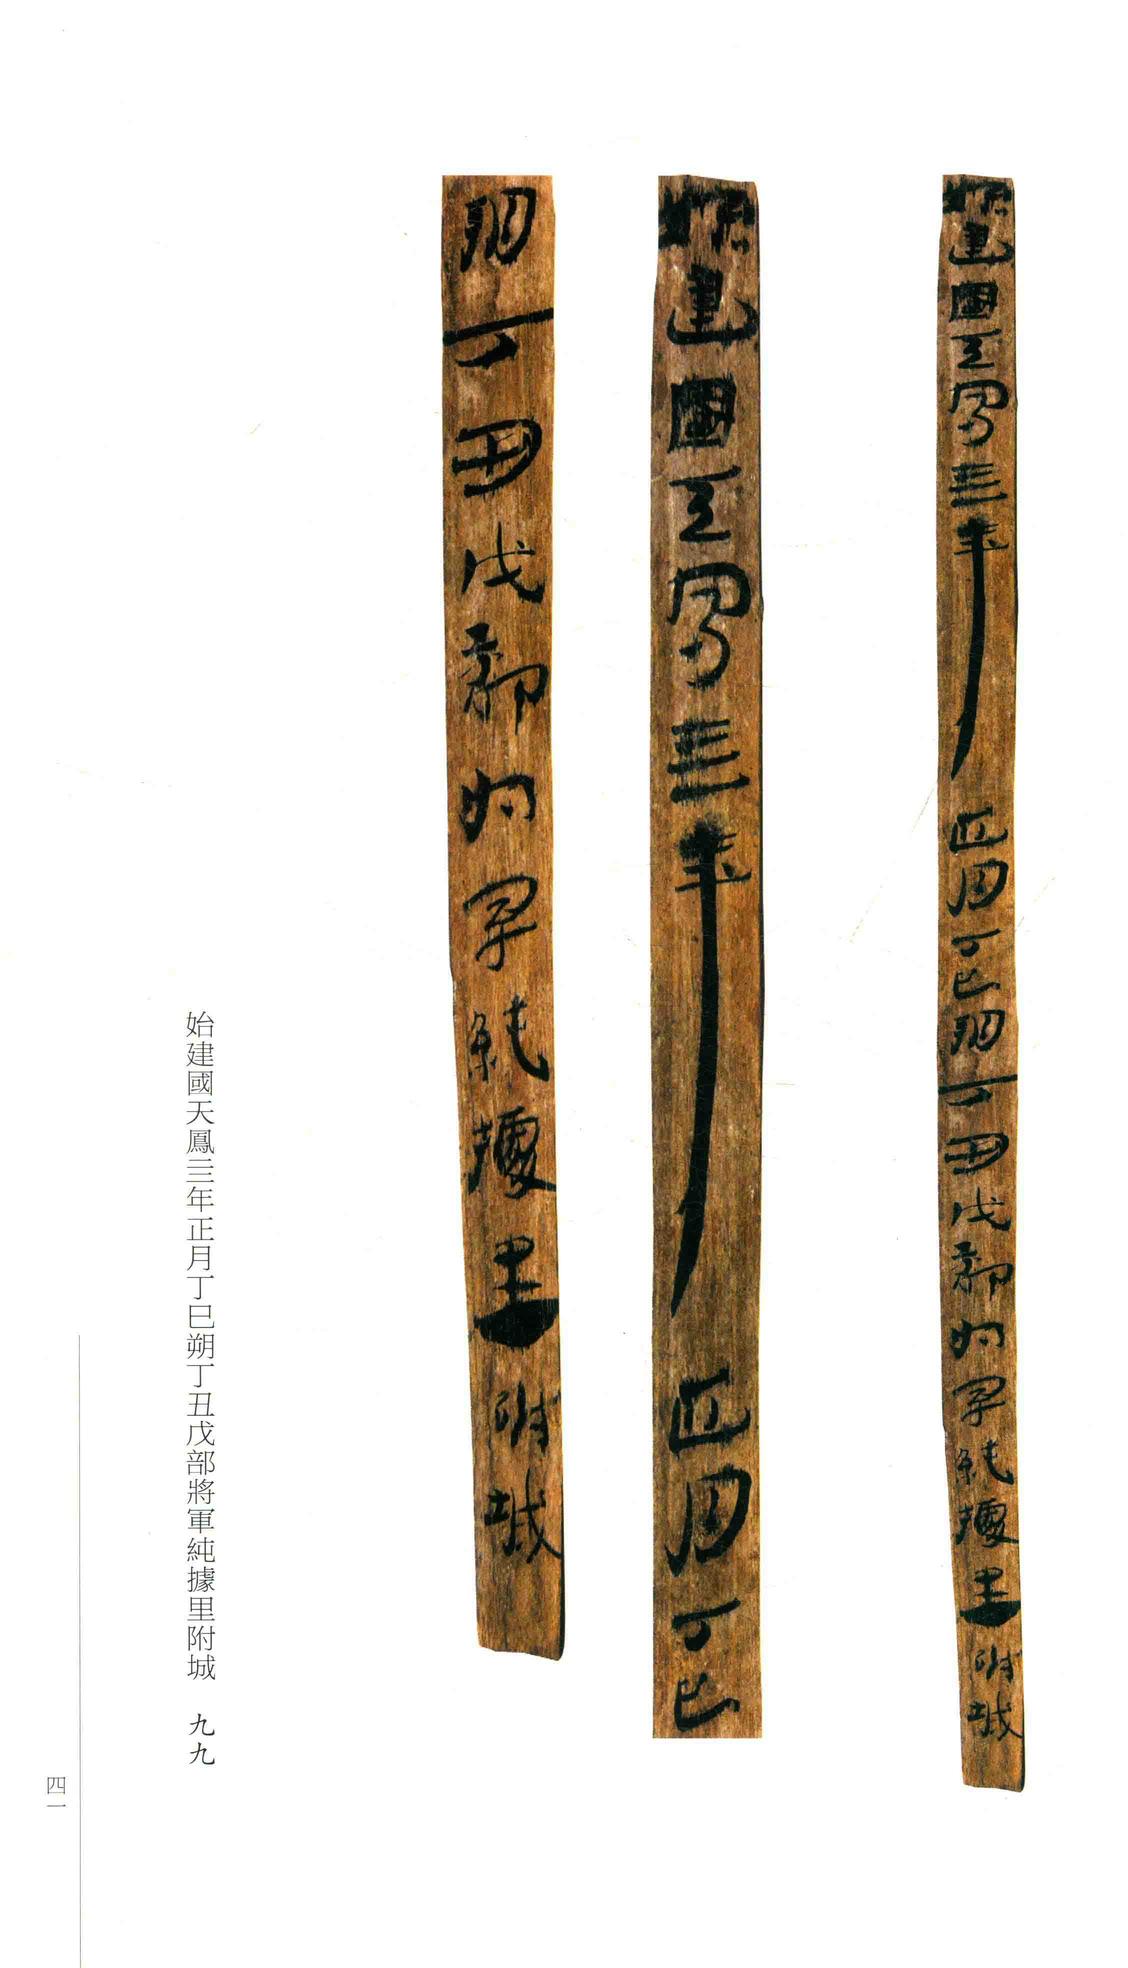 始建國天鳳三年正月丁巳朔丁丑戊部將軍純據里附城
始建國天鳳三年正月丁巳
朔丁丑戊部將軍純據里附城
始建國天鳳三年正月丁巳朔丁丑戊部將軍純據里附城 九九
四一